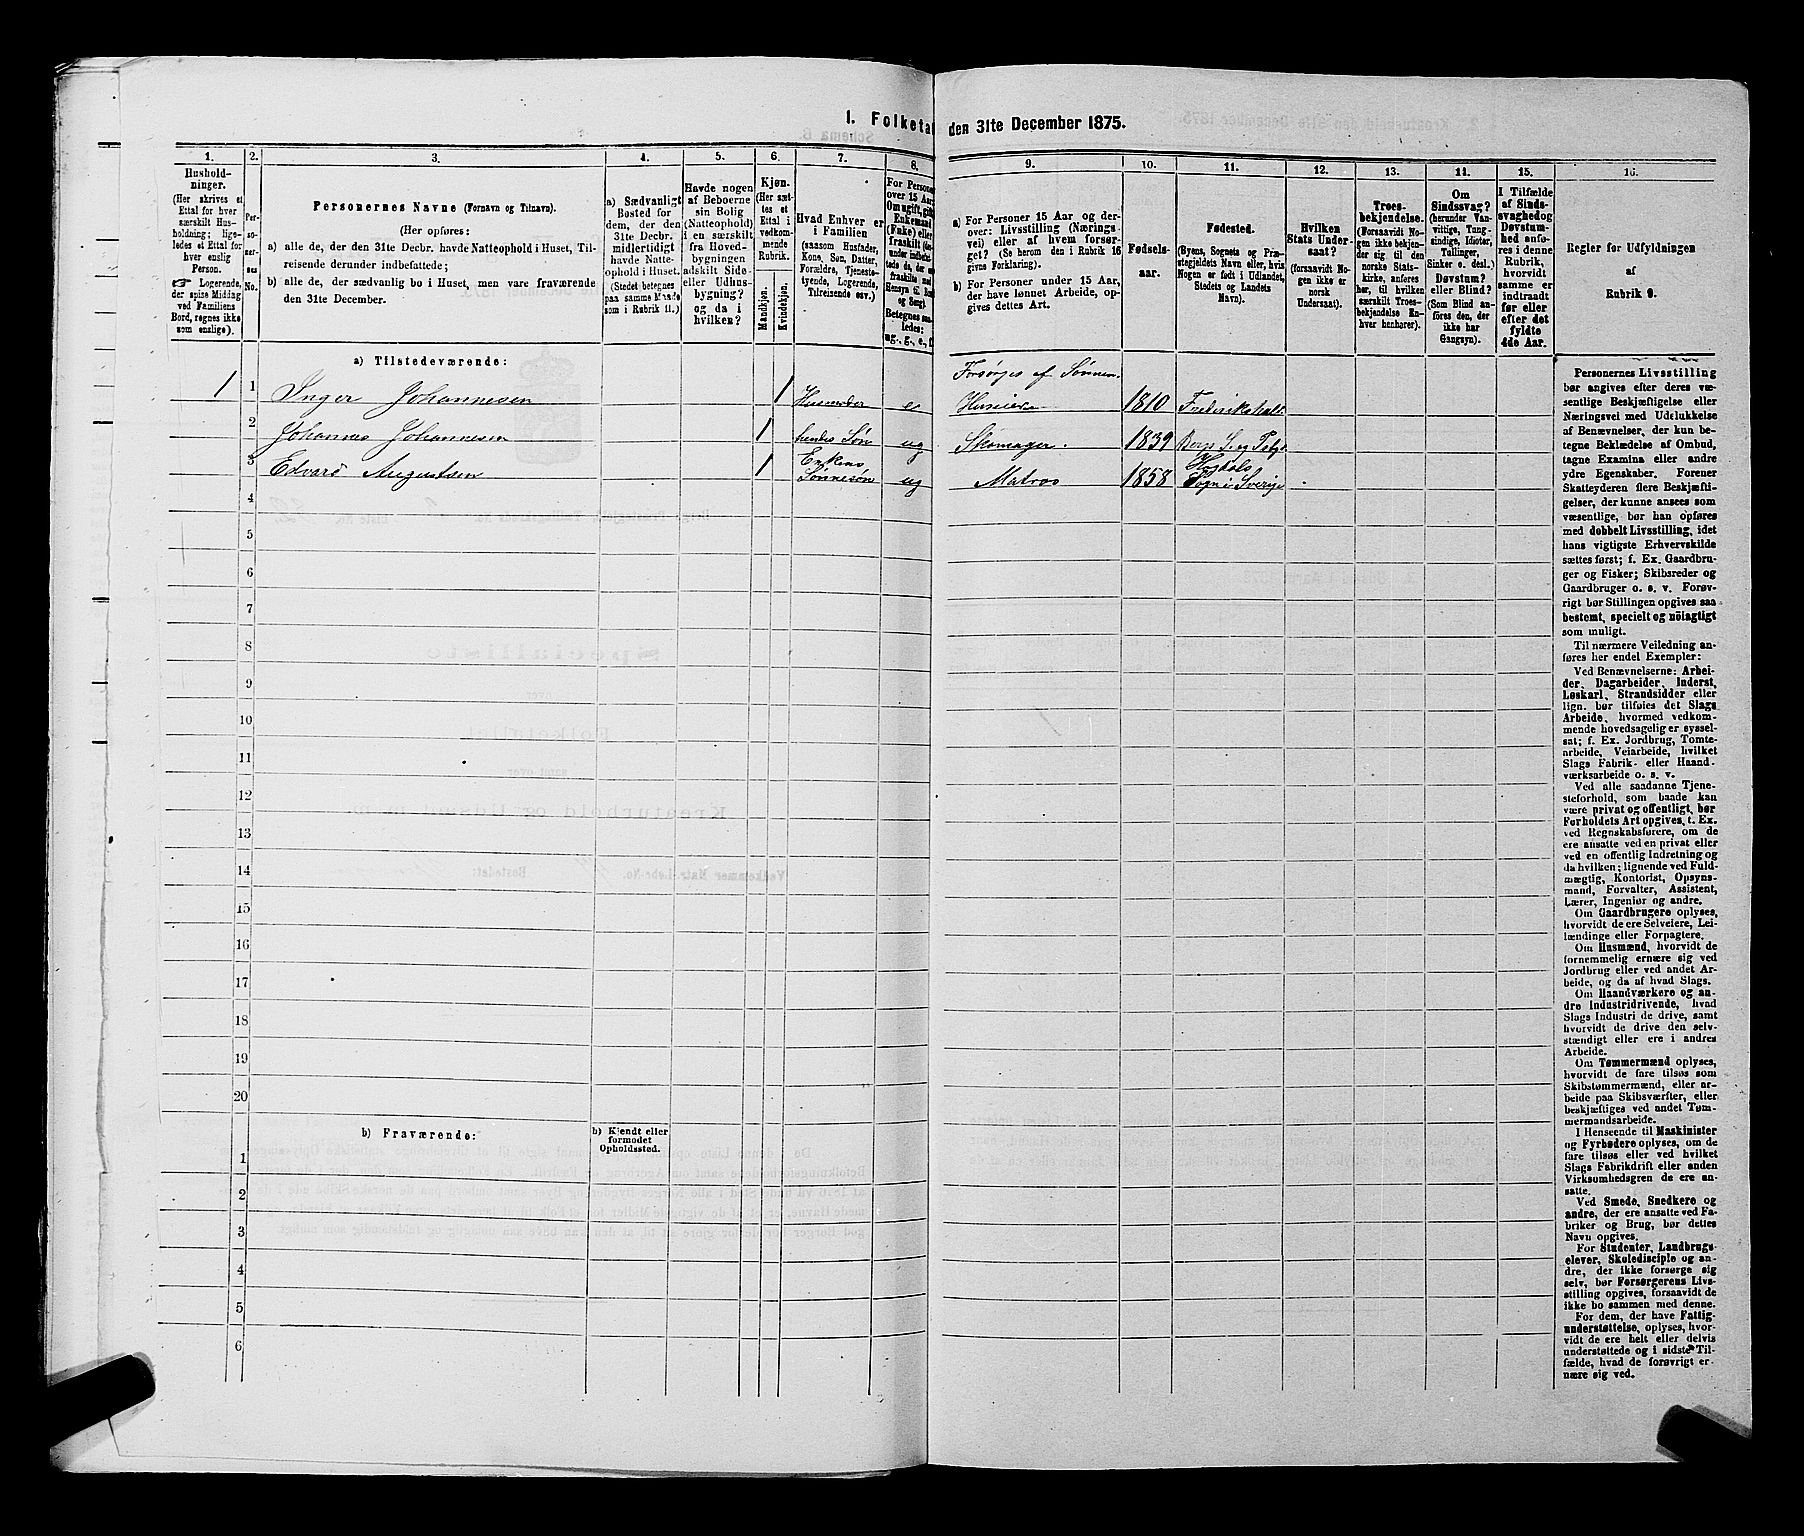 I. Folketal
den 31te December 1875.
1.
2.
3.
4.
5.
6.
7.
8.
9.
10.
11.
12.
13.
14.
15.
16.
Hushold-
ninger.
(Her skrives et
Ettal for hver
særskilt Hus-
holdning; lige-
ledes et Ettal for
hver enslig
Person.
☞ Logerende,
der spise Middag
ved Familiens
Bord, regnes ikke
som enslige).
Per-
so-
ner-
nes
No.
Personernes Navne (Fornavn og Tilnavn).
(Her opføres:
a) alle de, der den 31te Decbr. havde Natteophold i Huset, Til-
reisende derunder indbefattede;
b) alle de, der sædvanlig bo i Huset, men vare fraværende
den 31te December.
a) Sædvanligt
Bosted for
dem, der den
31te Decbr.
midlertidigt
havde Natte-
ophold i Huset.
(Stedet betegnes
paa samme Maade
som i Rubrik 11.)
Havde nogen
af Beboerne
sin Bolig
(Natteophold)
i en særskilt
fra Hoved-
bygningen
adskilt Side-
eller Udhus-
bygning?
og da i
hvilken?
Kjøn.
(Her sæt-
tes et
Ettal i
vedkom-
mende
Rubrik.
Mandkjøn.
Kvindekjøn.
Hvad Enhver er
i Familien
(saasom Husfader,
Kone, Søn, Datter,
Forældre, Tjeneste-
tyende, Logerende,
Tilreisende osv.)
For Persone
over 15 Aar
Om ugift, gift
Enkemand
(Enke) eller
fraskilt
Betegnes saa-
ledes:
ug., g., e., f.
a) For Personer 15 Aar og der-
over: Livsstilling (Nærings-
vei) eller af hvem forsør-
get? (Se herom den i Rubrik 16
givne Forklaring).
b) For Personer under 15 Aar,
der have lønnet Arbeide, op-
gives dettes Art.
Fødsels-
aar.
Fødested.
(Byens, Sognets og Præ-
stegjeldets Navn eller, hvis
Nogen er født i Udlandet,
Stedets og Landets
Navn).
Hvilken
Stats Under-
saat?
(forsaavidt No-
gen ikke er
norsk
Undersaat).
Troes-
bekjendelse.
(Forsaavidt No-
gen ikke bekjen-
der sig til den
norske Stats-
kirke, anføres
her, til hvilken
særskilt Troes-
bekjendelse En-
hver henhører).
Om
Sindssvag?
(herunder Van-
vittige, Tung-
sindige, Idioter,
Tullinger,
Sinker o. desl.)
Døvstum?
eller Blind?
(Som Blind an-
føres den, der
ikke har
Gangsyn).
I Tilfælde
af Sinds-
svaghed og
Døvstum-
hed anfø-
res i denne
Rubrik,
hvorvidt
samme er
indtraadt
før eller
efter det
fyldte
4de Aar.
Regler for Udfyldningen
af
Rubrik 9.
a) Tilstedeværende:
Forsørges af Sønnen.
1 1 Inger Johannesen 1 Husmoder e Huseier 1810 Fredrikshald
2 Johannes Johannesen 1 hendes Søn ug Skomager. 1839
3 Edvard Augustsen 1 Enkens Sønnesøn ug Matros 1858 Sogn i Sverige
4
5
6
7
8
9
10
11
12
13
14
15
16
17
18
19
20
b) Fraværende:
b) Kjendt eller
formodet
Opholdssted.
1
2
3
4
5
6
Personernes Livsstilling
bør angives efter deres væ-
sentlige Beskjæftigelse eller
Næringsvei med Udelukkelse
af Benævnelser, der kun be-
tegne Beklædelse af Ombud,
tagne Examina eller andre
ydre Egenskaber. Forener
Skatteyderen flere Beskjæfti-
gelser, der kunne ansees som
væsentlige, bør han opføres
med dobbelt Livsstilling, idet
hans vigtigste Erhvervskilde
sættes først; f. Ex. Gaardbru-
ger og Fisker; Skibsreder og
Gaardbruger o. s. v. Forøv-
rigt bør Stillingen opgives saa
bestemt, specielt og nøiagtigt
som muligt.
Til nærmere Veiledning an-
føres her endel Exempler:
Ved Benævnelserne: Arbei-
der, Dagarbeider, Inderst,
Løskarl, Strandsidder eller
lign. bør tilføies det Slags
Arbeide, hvormed vedkom-
mende hovedsagelig er syssel-
sat; f. Ex. Jordbrug, Tomte-
arbeide, Veiarbeide, hvilket
Slags Fabrik- eller Haand-
værksarbeide o. s. v.
Ved alle saadanne Tjene-
steforhold, som baade kan
være privat og offentligt, bør
Forholdets Art opgives, t. Ex.
ved Regnskabsførere, om de
ere ansatte ved en privat eller
ved en offentlig Indretning og
da hvilken; lignende ved Fuld-
mægtig, Kontorist, Opsyns-
mand, Forvalter, Assistent,
Lærer, Ingeniør og andre.
Om Gaardbrugere oplyses,
hvorvidt de ere Selveiere, Lei-
lændinge eller Forpagtere.
Om Husmænd, hvorvidt de
fornemmelig ernære sig ved
Jordbrug eller ved andet Ar-
beide, og da af hvad Slags.
Om Haandværkere og an-
dre Industridrivende, hvad
Slags Industri de drive, samt
hvorvidt de drive den selv-
stændigt eller ere i andres
Arbeide.
Om Tømmermænd oplyses,
hvorvidt de fare tilsøs som
Skibstømmermænd, eller ar-
beide paa Skibsværfter, eller
beskjæftiges ved andet Tøm-
mermandsarbeide.
I Henseende til Maskinister
og Fyrbødere oplyses, om de
fare tilsøs eller ved hvilket
Slags Fabrikdrift eller anden
Virksomhedsgren de ere an-
satte.
Ved Smede, Snedkere og
andre, der ere ansatte ved Fa-
briker og Brug, bør dettes
Navn opgives.
For Studenter, Landbrugs-
elever, Skoledisciple og an-
dre, der ikke forsørge sig
selv, bør Forsørgerens Livs-
stilling opgives, forsaavidt de
ikke bo sammen med denne.
For dem, der have Fattig-
understøttelse, oplyses, hvor-
vidt de ere helt eller delvis
understøttede og i sidste Til-
fælde, hvad de forøvrigt er-
nære sig ved.